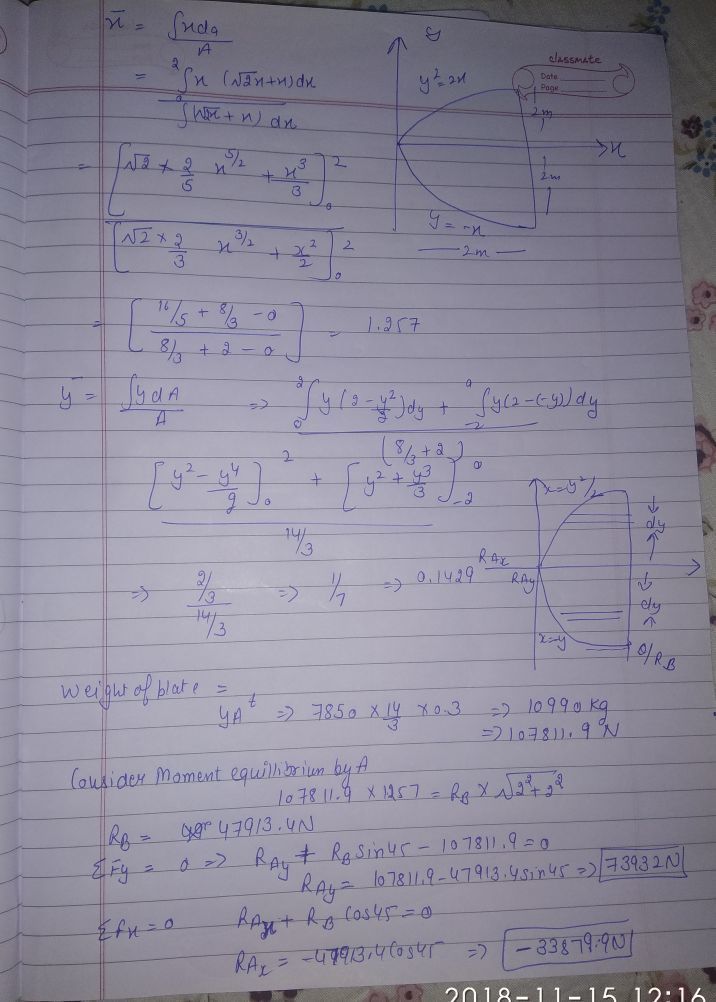 x̄ = ∫xda / A
= ₀∫² x (√2x+x)dx / ∫(√2x + x) dx
= [√2 × 2/5 x^5/2 + x³/3]₀² / [√2 × 2/3 x^3/2 + x²/2]₀²
= [16/5 + 8/3 - 0 / 8/3 + 2 - 0] = 1.257
y
classmate
Date
Page
y² = 2x
2m
x
2m
y = -x
2m
ȳ = ∫ydA / A => ₀∫² y(2 - y²/2)dy + ₋₂∫⁰ y(2-(-y))dy / (8/3 + 2)
[y² - y⁴/8]₀² + [y² + y³/3]₋₂⁰ / 14/3
=> 2/3 / 14/3 => 1/7 => 0.1429
x = y²/2
dy
RAx
RAy
dy
x=-y
RB
Weight of plate =
γAt => 7850 × 14/3 × 0.3 => 10990 kg
=> 107811.9 N
Consider Moment equillibrium by A
107811.9 × 1.257 = RB × √2²+2²
RB = 47913.4N
ΣFy = 0 => RAy + RBsin45 - 107811.9 = 0
RAy = 107811.9 - 47913.4sin45 => 73932N
Σfx = 0 RAx + RB Cos45 = 0
RAx = -47913.4Cos45 => -33879.9N
2018-11-15 12:16